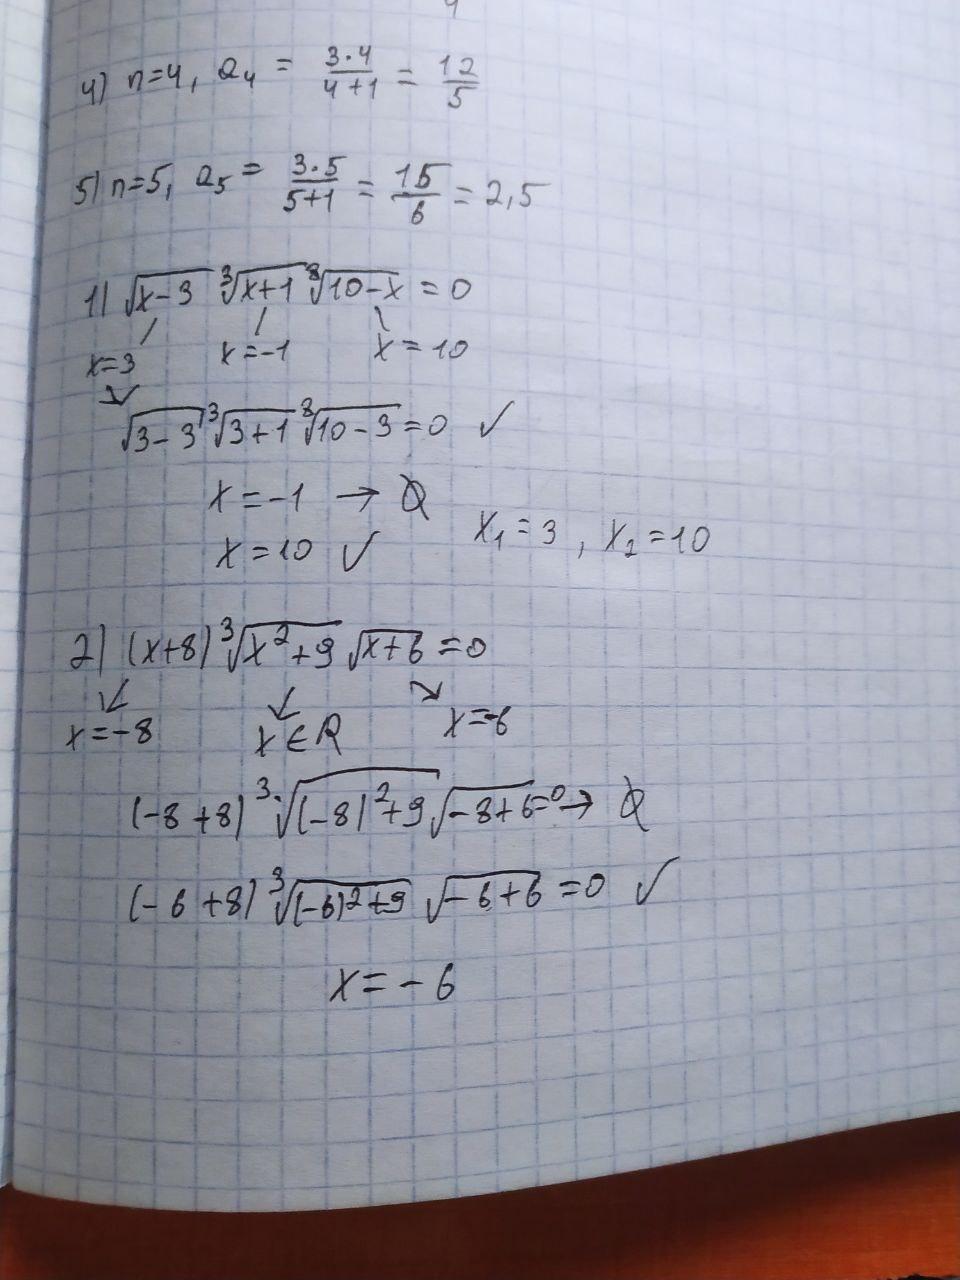 4) n=4, a₄ = (3·4)/(4+1) = 12/5
5) n=5, a₅ = (3·5)/(5+1) = 15/6 = 2,5
1) √(x-3) ∛(x+1) ⁸√(10-x) = 0
x=3 x=-1 x=10
√(3-3) ∛(3+1) ⁸√(10-3) = 0 ✓
x=-1 → ∅
x=10 ✓ x₁=3, x₂=10
2) (x+8) ∛(x²+9) √(x+6) = 0
x=-8 x∈R x=-6
(-8+8) ∛((-8)²+9) √(-8+6)=0 → ∅
(-6+8) ∛((-6)²+9) √(-6+6) = 0 ✓
x=-6